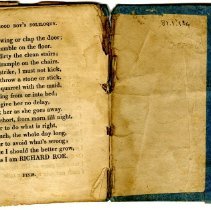 OOD BOY'S SOLILOQUY.
wing or clap the door;
amble on the floor.
dirty the clean stairs;
xample on the chairs.
strike, I must not kick,
throw a stone or stick,
quarrel with the maid,
ing from or into bed;
give her no delay,
her as she goes away.
short, from morn till night,
r to do what is right,
ach, the whole day long,
r to avoid what's wrong;
e I should the better grow,
s I am RICHARD ROE.
FINIS.